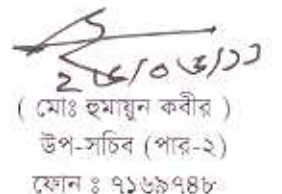 ২৬/০৬/১১
( মোঃ হুমায়ুন কবীর )
উপ-সচিব (পার-২)
ফোন ঃ ৭১৬৯৭৪৮